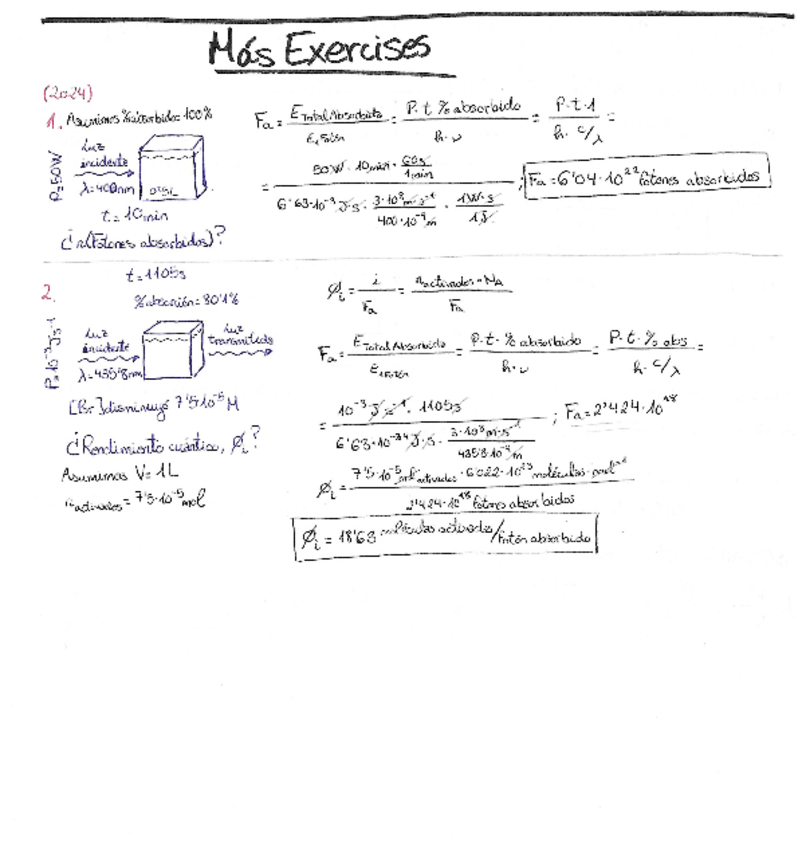 Más Exercises
(2024)
1. Asumimos % absorbido = 100%
P=50W
Luz incidente
λ=400nm
0'5L
t=10min
¿n(Fotones absorbidos)?
Fa = E Total Absorbida / E 1 Fotón = P·t·% absorbido / h·ν = P·t·1 / h·c/λ =
= 50W · 10min · 60s/1min / 6'63·10⁻³ J·s · 3·10⁸ m·s⁻¹ / 400·10⁻⁹ m · 1W·s/1J ; Fa = 6'04·10²² fotones absorbidos
2.
t=1105s
% absorción = 80'1%
P=10⁻³ J·s⁻¹
Luz incidente
λ=435'8nm
Luz transmitida
[Br₂] disminuyó 7'5·10⁻⁵ M
¿Rendimiento cuántico, Øi?
Asumimos V=1L
n activados = 7'5·10⁻⁵ mol
Øi = i / Fa = n activados · NA / Fa
Fa = E Total Absorbido / E 1 Fotón = P·t·% absorbido / h·ν = P·t·% abs / h·c/λ =
= 10⁻³ J·s⁻¹ · 1105s / 6'63·10⁻³⁴ J·s · 3·10⁸ m·s⁻¹ / 435'8·10⁻⁹ m ; Fa = 2'424·10¹⁸
Øi = 7'5·10⁻⁵ mol activados · 6'022·10²³ moléculas·mol⁻¹ / 2'424·10¹⁸ fotones absorbidos
Øi = 18'63 moléculas activadas / Fotón absorbido